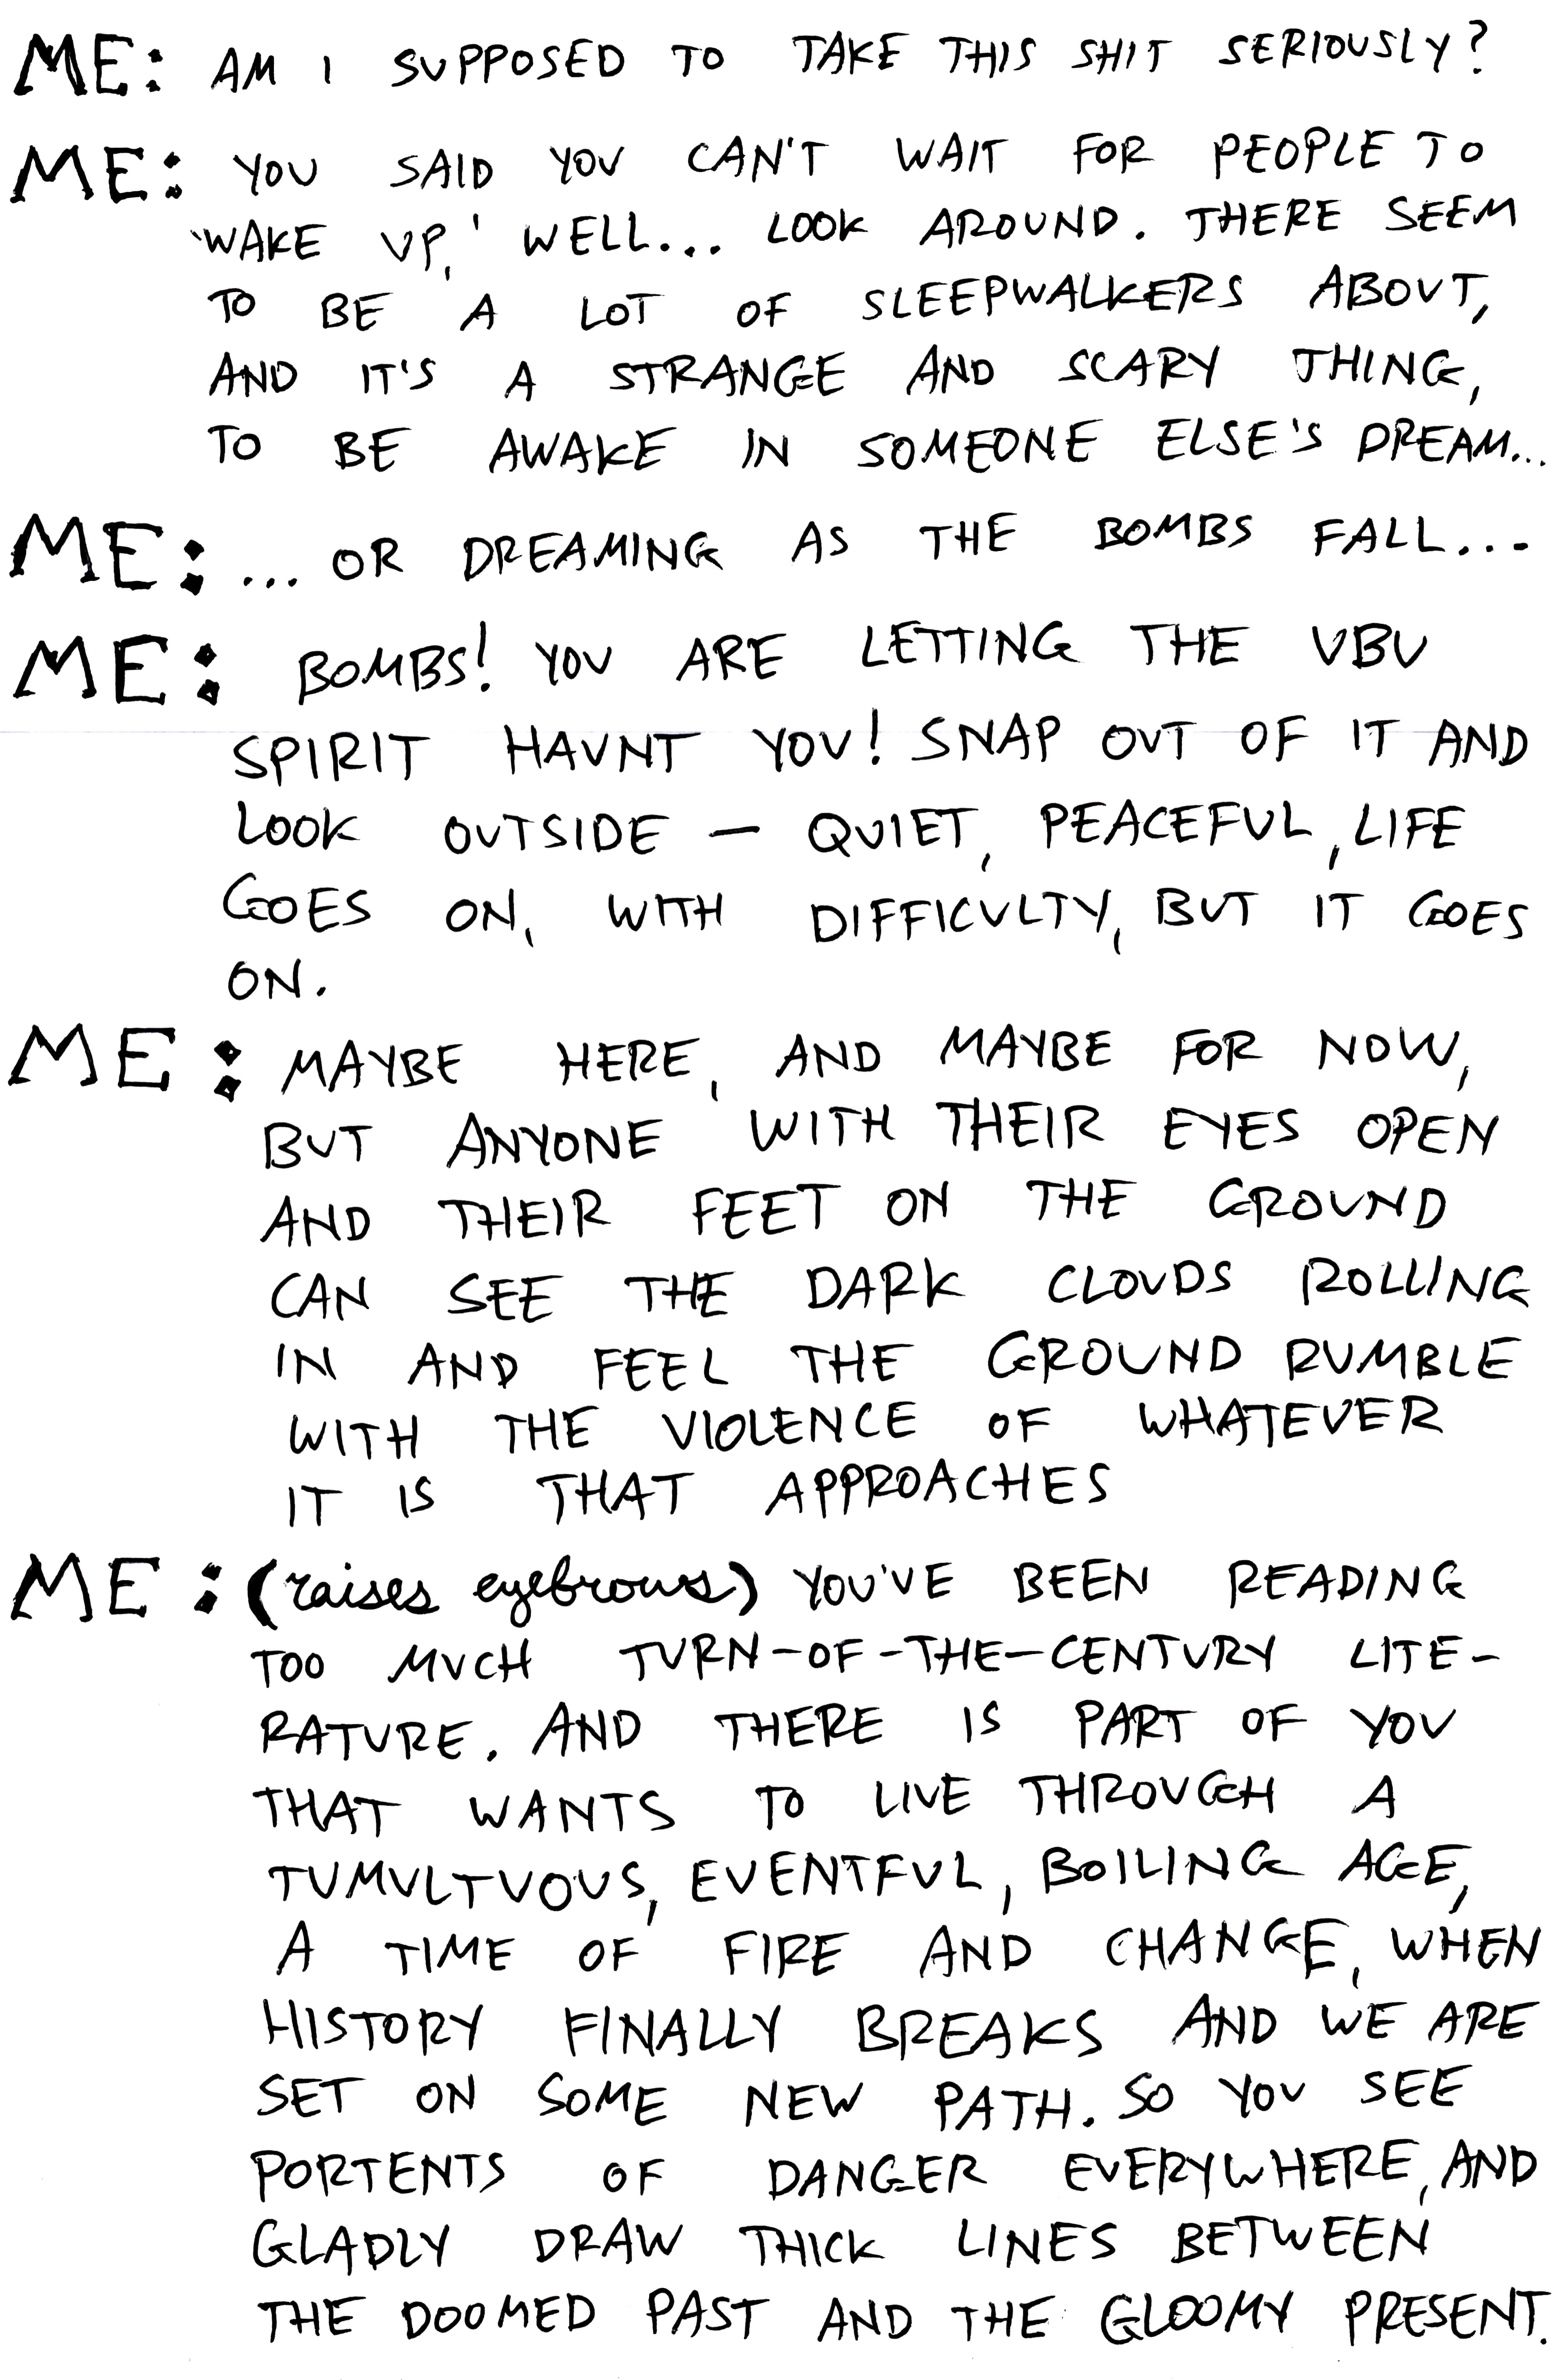 ME: AM I SUPPOSED TO TAKE THIS SHIT SERIOUSLY?
ME: YOU SAID YOU CAN'T WAIT FOR PEOPLE TO
'WAKE UP,' WELL... LOOK AROUND. THERE SEEM
TO BE A LOT OF SLEEPWALKERS ABOUT,
AND IT'S A STRANGE AND SCARY THING,
TO BE AWAKE IN SOMEONE ELSE'S DREAM...
ME: ... OR DREAMING AS THE BOMBS FALL...
ME: BOMBS! YOU ARE LETTING THE VBU
SPIRIT HAUNT YOU! SNAP OUT OF IT AND
LOOK OUTSIDE — QUIET, PEACEFUL, LIFE
GOES ON, WITH DIFFICULTY, BUT IT GOES
ON.
ME: MAYBE HERE, AND MAYBE FOR NOW,
BUT ANYONE WITH THEIR EYES OPEN
AND THEIR FEET ON THE GROUND
CAN SEE THE DARK CLOUDS ROLLING
IN AND FEEL THE GROUND RUMBLE
WITH THE VIOLENCE OF WHATEVER
IT IS THAT APPROACHES
ME: (raises eyebrows) YOU'VE BEEN READING
TOO MUCH TURN-OF-THE-CENTURY LITE-
RATURE. AND THERE IS PART OF YOU
THAT WANTS TO LIVE THROUGH A
TUMULTUOUS, EVENTFUL, BOILING AGE,
A TIME OF FIRE AND CHANGE, WHEN
HISTORY FINALLY BREAKS AND WE ARE
SET ON SOME NEW PATH. SO YOU SEE
PORTENTS OF DANGER EVERYWHERE, AND
GLADLY DRAW THICK LINES BETWEEN
THE DOOMED PAST AND THE GLOOMY PRESENT.